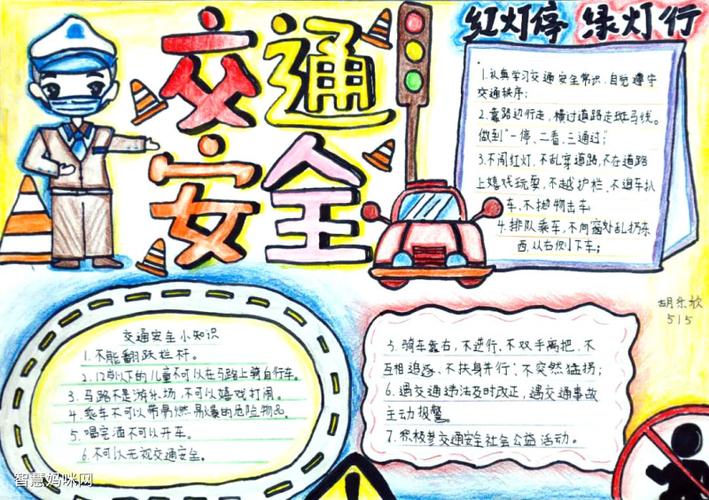 交通
安全
红灯停 绿灯行
1.认真学习交通安全常识,自觉遵守
交通秩序;
2.靠路边行走,横过道路走斑马线。
做到"一停、二看、三通过;
3.不闯红灯,不乱穿道路,不在道路
上嬉戏玩耍,不越护栏、不追车扒
车、不抛物击车
4.排队乘车,不向窗外乱扔东
西,从右侧下车;
胡乐
515
交通安全小知识
1.不能翻跃栏杆。
2.12岁以下的儿童不可以在马路上骑自行车。
3.马路不是游乐场,不可以嬉戏打闹。
4.乘车不可以带易燃易爆的危险物品。
5.喝完酒不可以开车。
6.不可以无视交通安全。
5.骑车靠右,不逆行,不双手离把,不
互相追逐、不扶身并行,不突然猛拐;
6.遇交通违法及时改正,遇交通事故
主动报警。
7.积极参交通安全社会公益活动。
智慧妈咪网